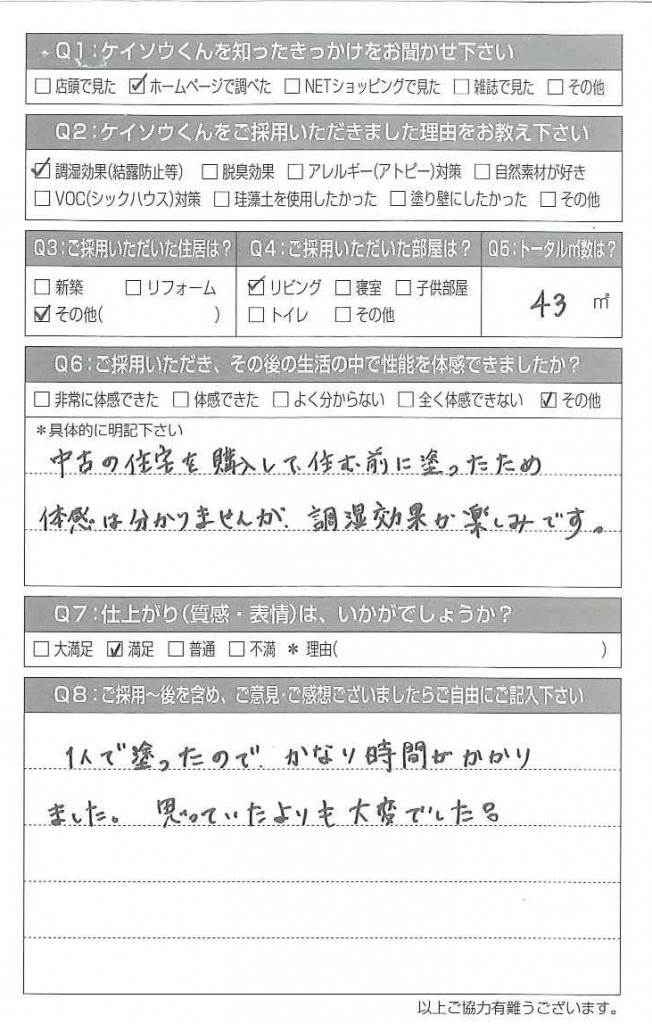 Q1:ケイソウくんを知ったきっかけをお聞かせ下さい
□店頭で見た ☑ホームページで調べた □NETショッピングで見た □雑誌で見た □その他
Q2:ケイソウくんをご採用いただきました理由をお教え下さい
☑調湿効果(結露防止等) □脱臭効果 □アレルギー(アトピー)対策 □自然素材が好き
□VOC(シックハウス)対策 □珪藻土を使用したかった □塗り壁にしたかった □その他
Q3:ご採用いただいた住居は? Q4:ご採用いただいた部屋は? Q5:トータル㎡数は?
□新築 □リフォーム ☑リビング □寝室 □子供部屋 43 ㎡
☑その他( ) □トイレ □その他
Q6:ご採用いただき、その後の生活の中で性能を体感できましたか?
□非常に体感できた □体感できた □よく分からない □全く体感できない ☑その他
*具体的に明記下さい
中古の住宅を購入して、住む前に塗ったため
体感は分かりませんが、調湿効果が楽しみです。
Q7:仕上がり(質感・表情)は、いかがでしょうか?
□大満足 ☑満足 □普通 □不満 *理由( )
Q8:ご採用〜後を含め、ご意見・ご感想ございましたらご自由にご記入下さい
1人で塗ったので、かなり時間がかかり
ました。思っていたよりも大変でした。
以上ご協力有難うございます。